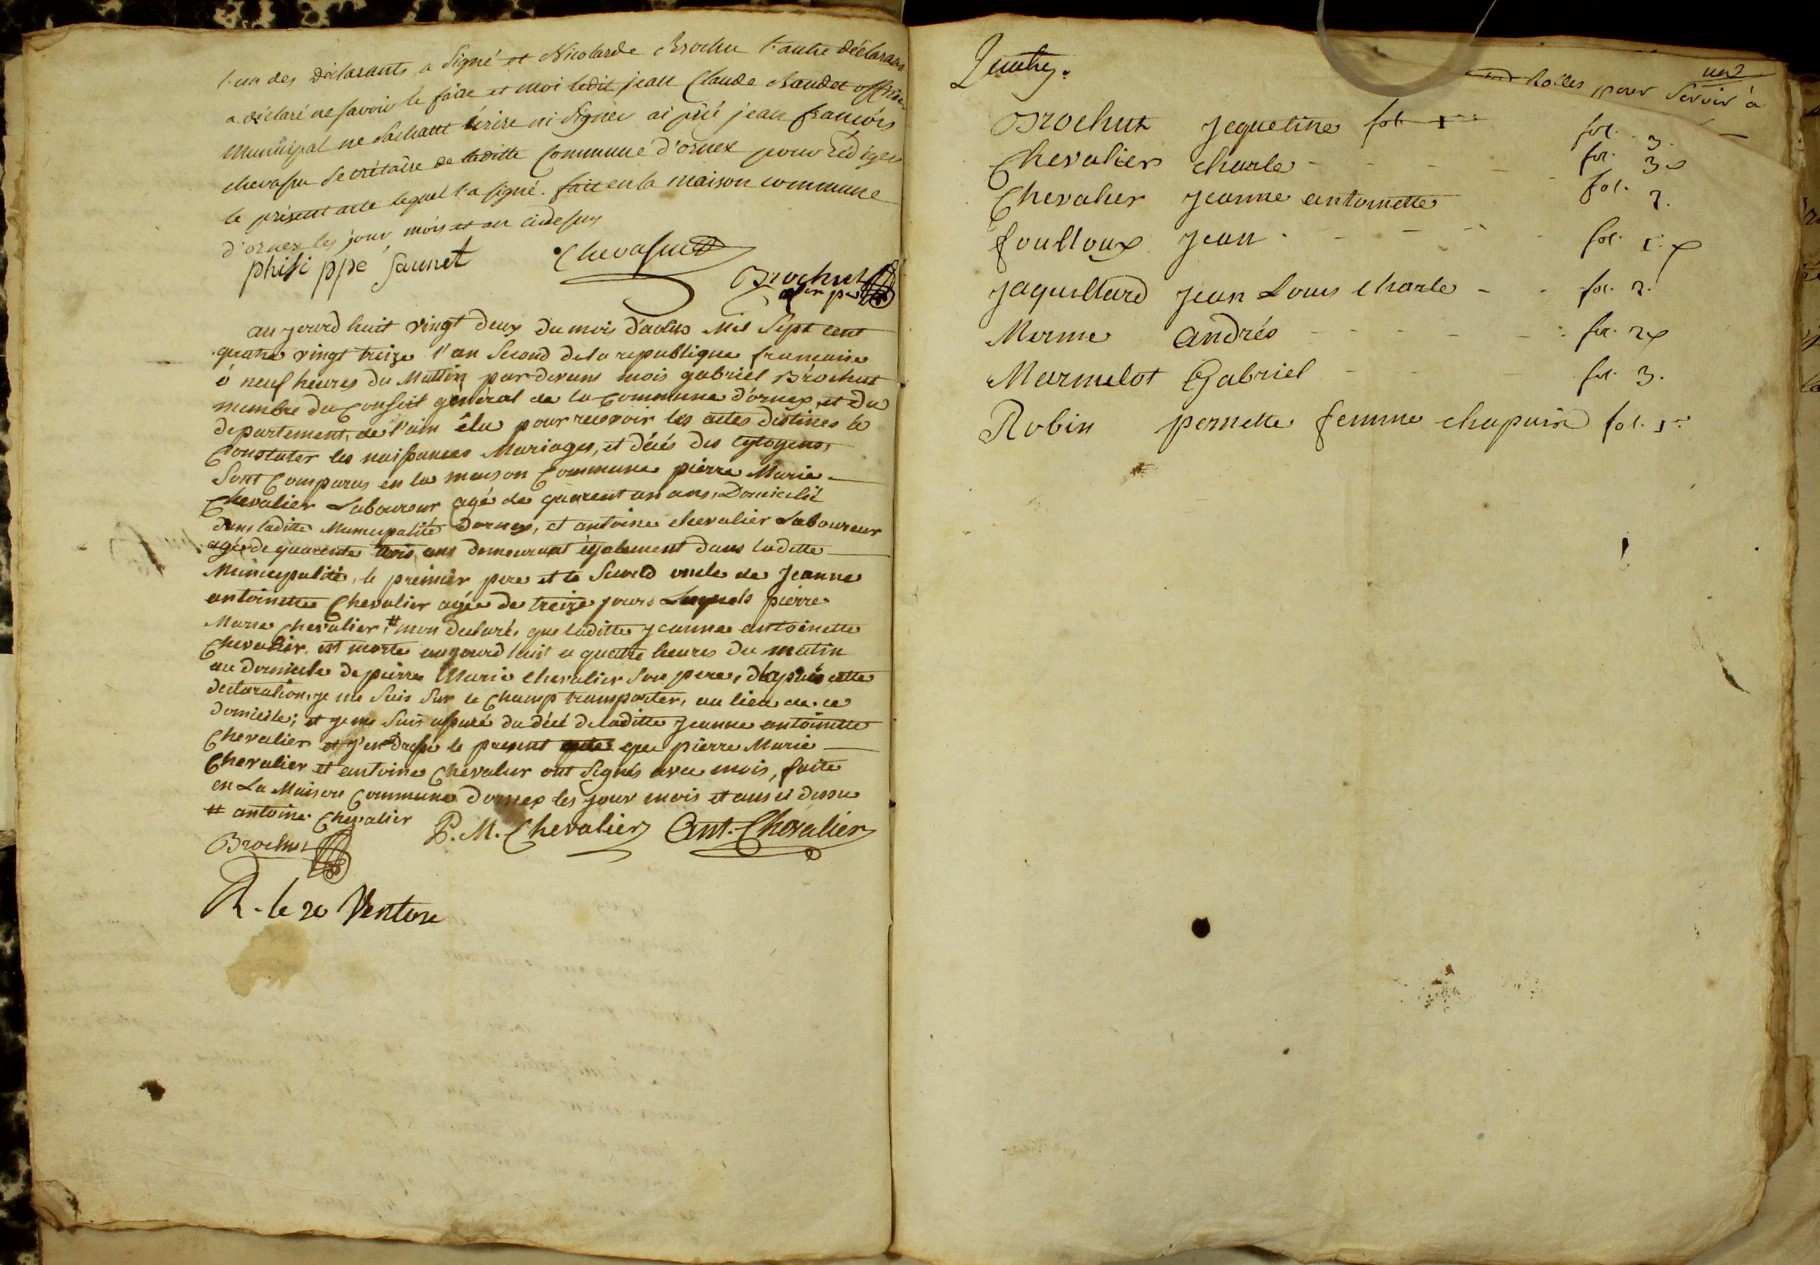 l'un des déclarants a signé et Nicolarde Brochu l'autre déclarant
a déclaré ne savoir le faire et moi ledit jean Claude Baudet officier
Municipal ne sachant écrire ni signer ai prié jean françois
chevassu secrétaire de laditte Commune d'ornex pour rédiger
le présent acte lequel l'a signé. fait en la maison commune
d'ornex les jour mois et an cidessus
philippe Jaunet Chevassu
Brochut
au jourd huit vingt deux du mois daous Mil Sept cent
quatre vingt treize l'an second de la republique francaise
à neuf heures du Mattin par devans mois gabriel Brochut
membre du Conseil général de la Commune d'ornex et du
departement de l'ain élu pour recevoir les actes distines à
Constater les naissances Mariages, et décés des cytoyens,
Sont Comparus en la maison Commune pierre Marie
Chevalier Laboureur agé de quarent un ans, Domicilié
dans ladite Municipalité Dornex, et antoine chevalier Laboureur
agé de quarente trois ans demeurant également dans laditte
Municipalité, le premier pere et le Second oncle de Jeanne
antoinette Chevalier agée de treize jours Lesquels pierre
Marie Chevalier # mon declaré, que laditte jeanne antoinette
Chevalier est morte aujourd huit a quatre heures du matin
au domicile de pierre Marie Chevalier son pere, d'après cette
declaration, je me suis sur le Champ transporter, au lieu de ce
domicile; et je me suis assuré du décé de laditte jeanne antoinette
Chevalier et j'en dresse le present acte que pierre Marie
Chevalier et antoine Chevalier ont signés avec mois, faite
en La Maison Commune d'ornex les jour mois et ans ci dessu
# antoine Chevalier P. M. Chevalier Ant. Chevalier
Brochut
R. le 20 Ventose
Rolles pour servir à
Brochut Jequeline fol. 1
fol. 3.
Chevalier charle fol. 3
Chevalier jeanne antoinette fol. 2.
foulloux jean fol. 1.
jaquillard jean Louis charle fol. 2.
Merme andréo fol. 2
Marmelot Gabriel fol. 3.
Robin pernette femme chapuis fol. 1